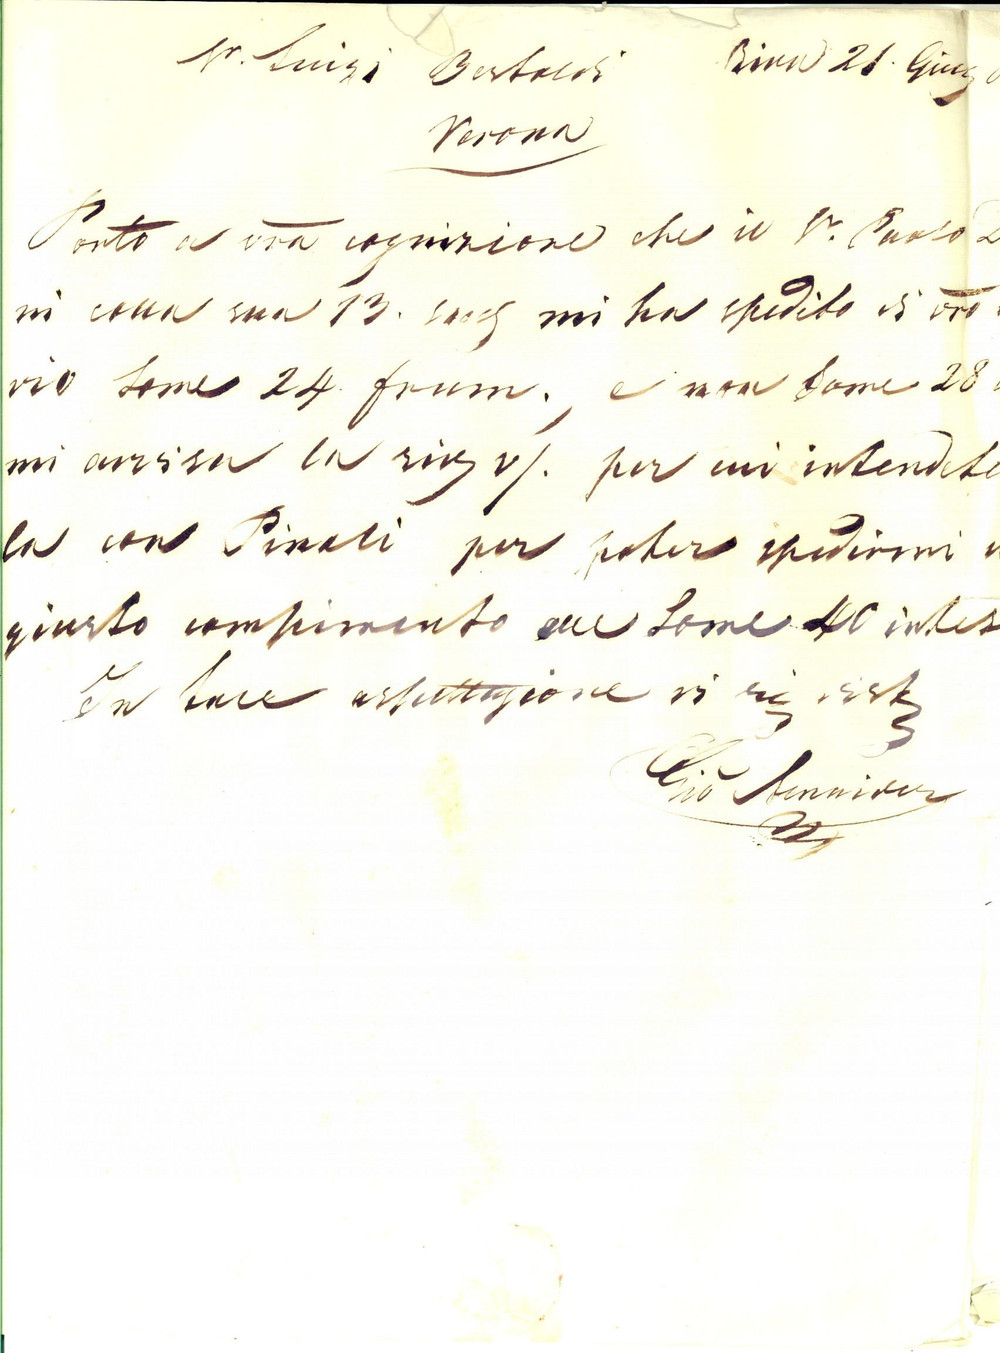 Sr. Luigi Bertoldi Riva 21. Giug
Verona
Porto a vra cognizione che il Sr. Paolo
ni colla sua 13. mi ha spedito di vro
rio Some 24 frum., e non Some 28
mi avvisa la per cui intendete
la con Pinali per poter spedirmi
giusto compimento alle Some 40 intes
In tale aspettazione vi
Gio